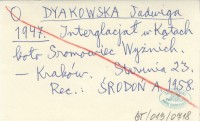 O DYAKOWSKA Jadwiga
1947. Interglacjał w Kątach
koło Sromowiec Wyżnich.
— Kraków. Starunia 23.
Rec.: ŚRODOŃ A. 1958.
BT/019/0418